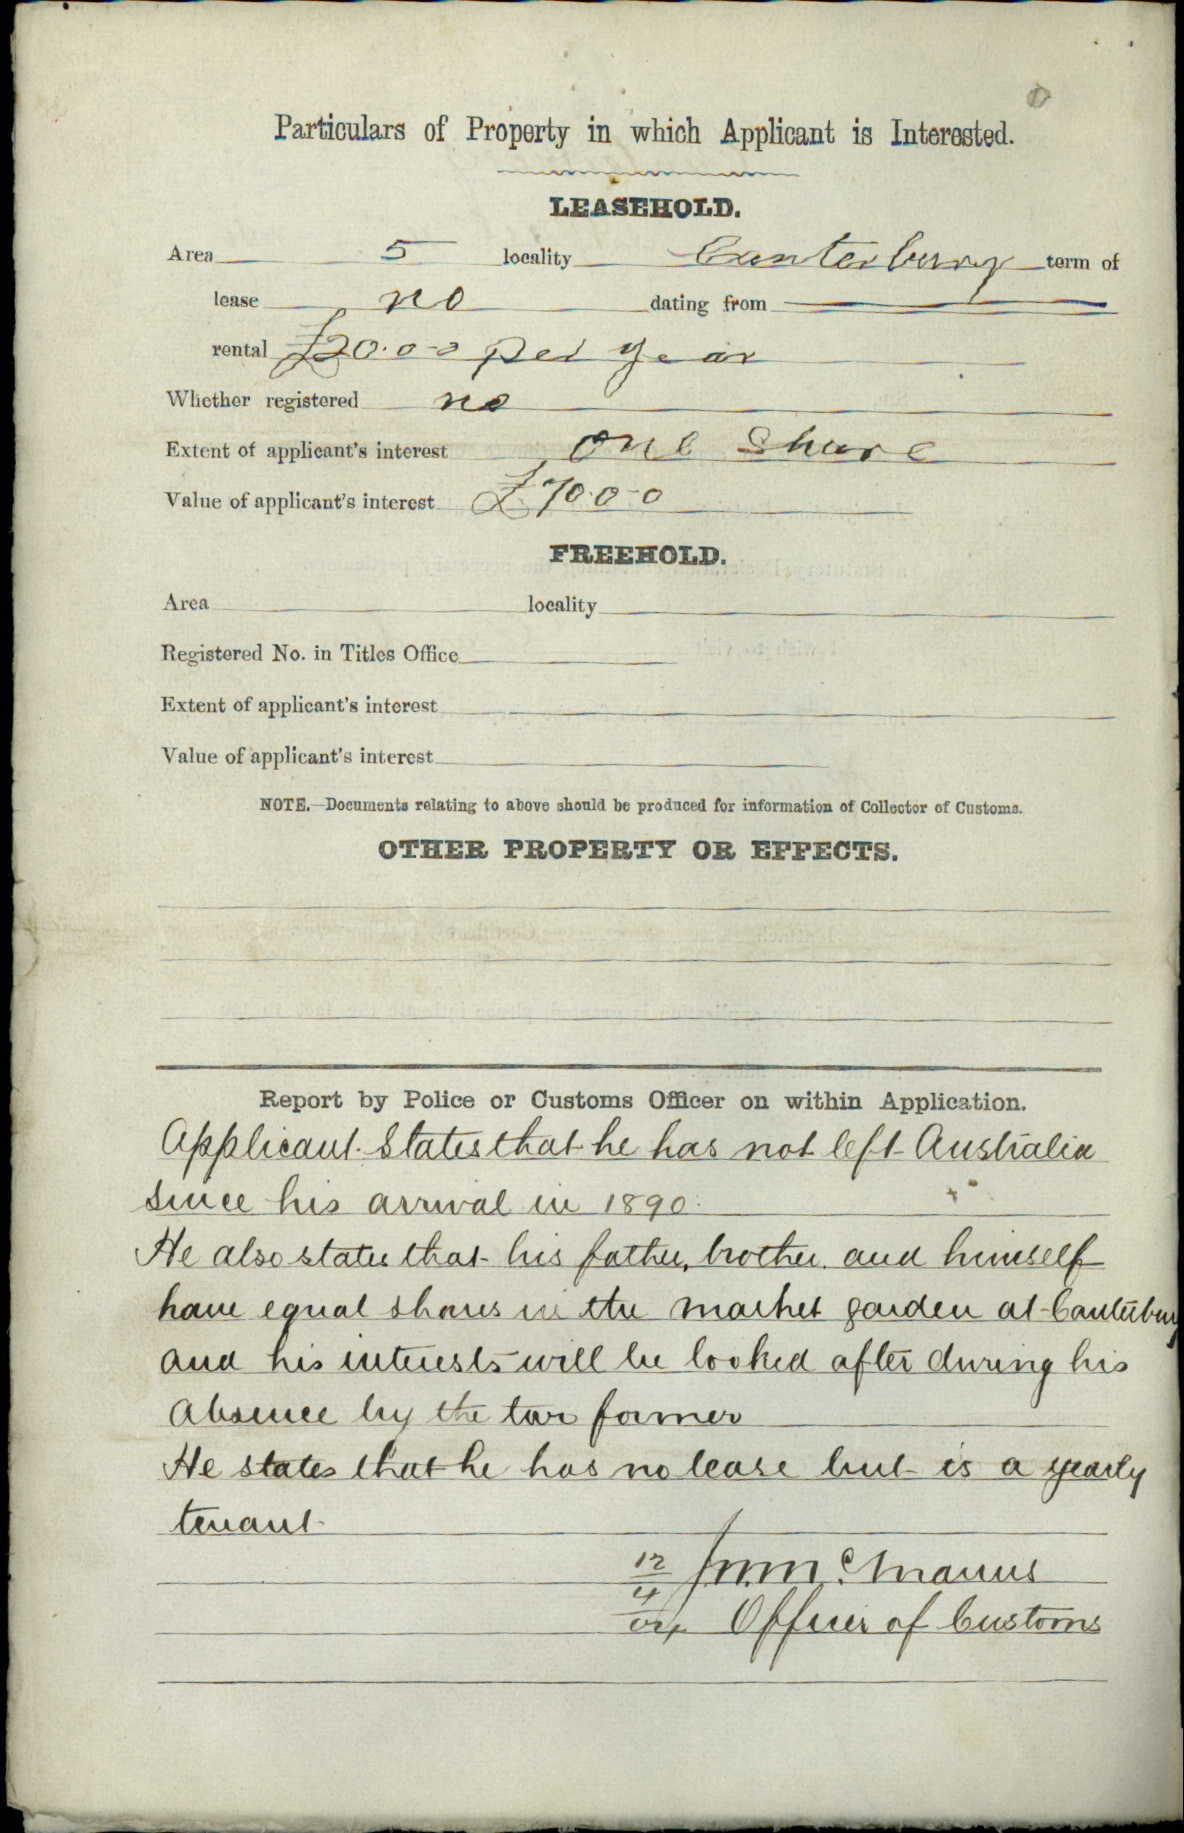 Particulars of Property in which Applicant is Interested.
LEASEHOLD.
Area 5 locality Canterbury term of
lease no dating from
rental £20.0-0 per year
Whether registered no
Extent of applicant's interest one share
Value of applicant's interest £70.0-0
FREEHOLD.
Area locality
Registered No. in Titles Office
Extent of applicant's interest
Value of applicant's interest
NOTE.—Documents relating to above should be produced for information of Collector of Customs.
OTHER PROPERTY OR EFFECTS.
Report by Police or Customs Officer on within Application.
Applicant States that he has not left Australia
since his arrival in 1890.
He also states that his father, brother and himself
have equal shares in the market garden at Canterbury
and his interests will be looked after during his
absence by the two former
He states that he has no lease but is a yearly
tenant.
12 McManus
4
04 Officer of Customs